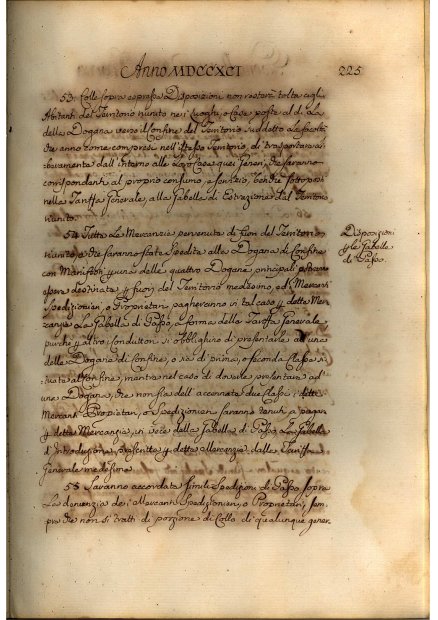 Anno MDCCXCI
225
53 Colle sopra espresse Disposizioni non resterà tolta agli
Abitanti del Territorio riunito nei Luoghi, o Case poste al di là
della Dogana verso il Confine del Territorio suddetto la facoltà
che anno come compresi nell'istesso Territorio, di trasportare
dall'Interno alle Loro Case quei Generi, che saranno
corrispondenti al proprio consumo, e servizio, benchè sottoposti
nella Tariffa Generale, alla Gabella di Estrazione dal Territorio
riunito.
54 Tutte Le Mercanzie pervenute di fuori del Territorio
riunito, e che saranno state spedite alle Dogane di Confine
con Manifesti p una delle quattro Dogane principali, potranno
essere destinate p fuori del Territorio medesimo, ed i Mercanti
Spedizionieri, o Proprietari pagheranno in tal caso p dette Mer
canzie La Gabella di Passo, a forma della Tariffa Generale
purchè altro conduttori si obblighino di presentarle ad una
delle Dogane di Confine, o sia di prima, o seconda Classe si
tuate al Confine, mentre nel caso di doverle presentare ad
una Dogana, che non sia dell'accennate due Classi, i detti
Mercanti Proprietari, o Spedizionieri saranno tenuti a pagare
p dette Mercanzie, in vece della Gabella di Passo, La Gabella
d'Introduzione, prescritta p dette Mercanzie dalla Tariffa
Generale medesima.
55 Saranno accordate simili Spedizioni di Passo sopra
La denunzia dei Mercanti Spedizionieri, o Proprietari, sem
pre che non si tratti di porzione di Collo di qualunque gener
Disposizioni
p le Gabelle
di Passo.